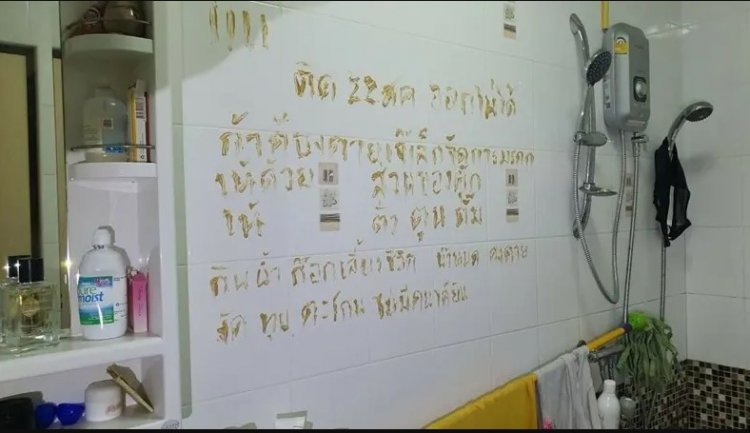 ติด 22 สค ออกไม่ได้
ถ้าต้องตายเจ๊เล็กจัดการมรดก
ให้ด้วย ส่วนของตุ๊ก
ให้ ต้า ตูน ตั้ม
กินน้ำ ก๊อกเลี้ยงชีวิต น้ำหมด คงตาย
งัด ทุบ ตะโกน ไม่มีคนได้ยิน
pure
moist